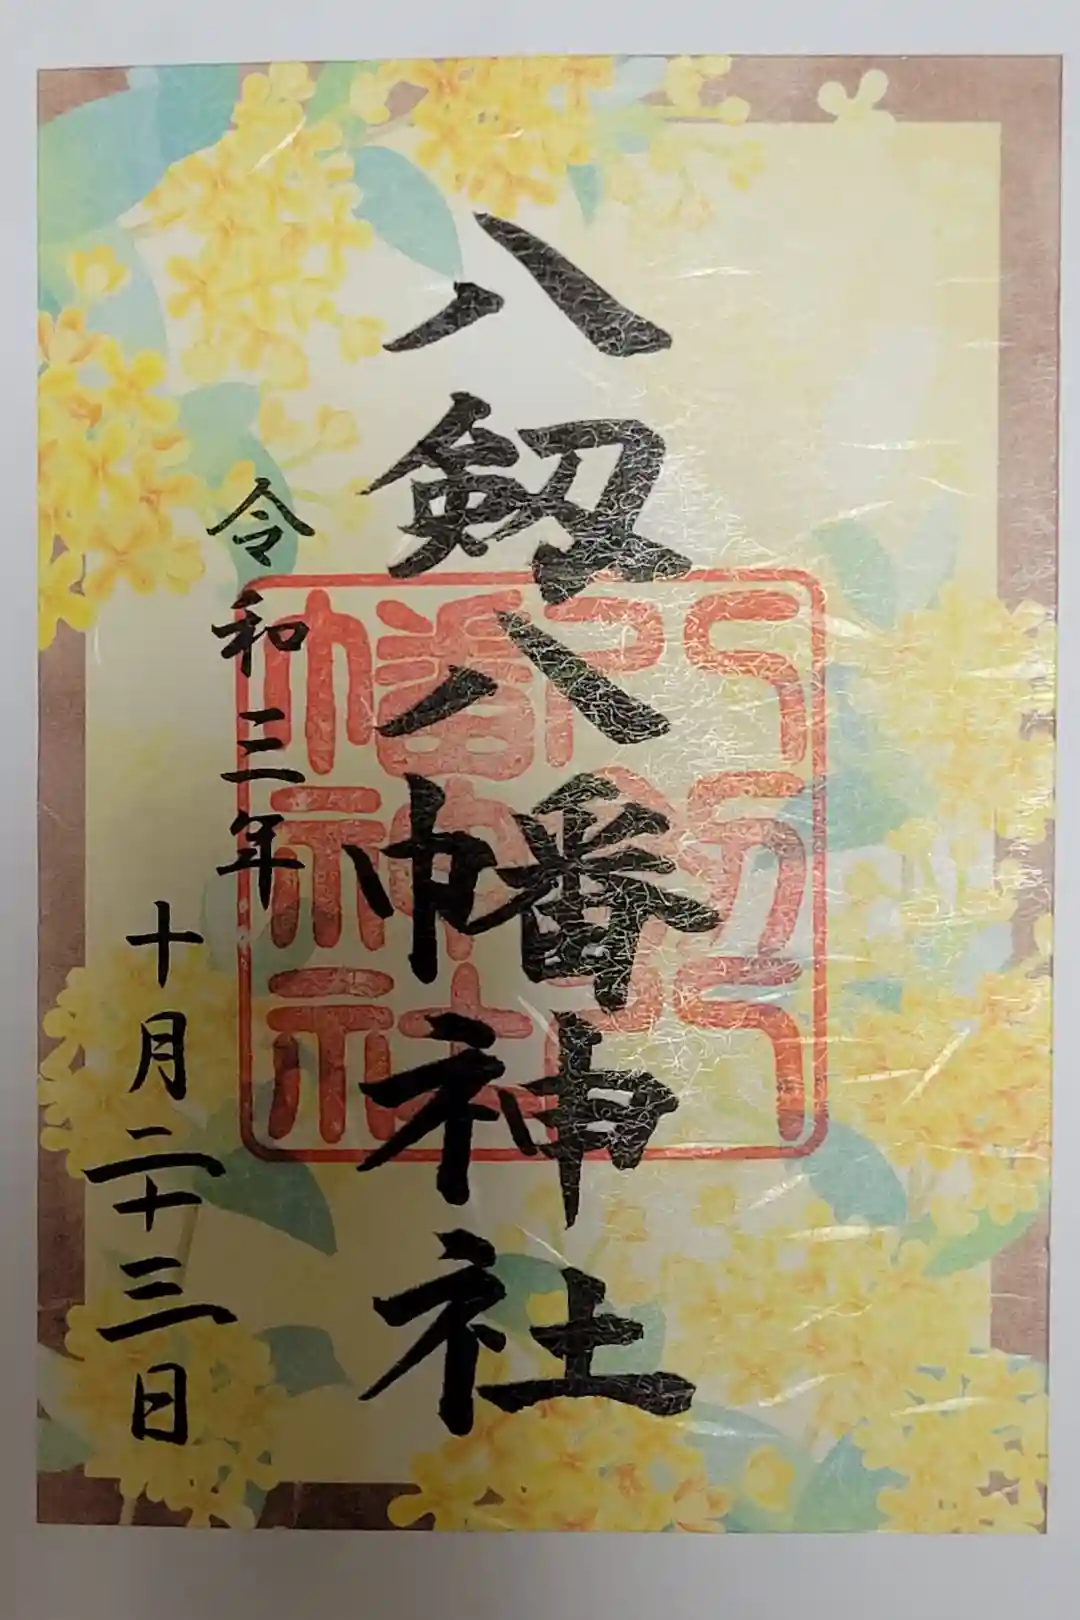 八剱八幡神社
令和三年
十月二十三日
八剱八
幡神社